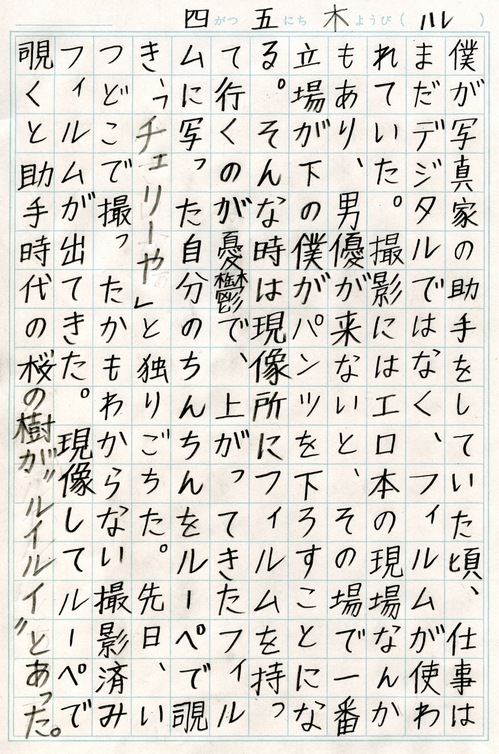 四がつ五にち木ようび(ハル)
僕が写真家の助手をしていた頃、仕事は
まだデジタルではなく、フィルムが使わ
れていた。撮影にはエロ本の現場なんか
もあり、男優が来ないと、その場で一番
立場が下の僕がパンツを下ろすことにな
る。そんな時は現像所にフィルムを持っ
て行くのが憂鬱で、上がってきたフィル
ムに写った自分のちんちんをルーペで覗
き、「チェリーや」と独りごちた。先日、い
つどこで撮ったかもわからない撮影済み
フィルムが出てきた。現像してルーペで
覗くと助手時代の桜の樹が〝ルイルイ〟とあった。